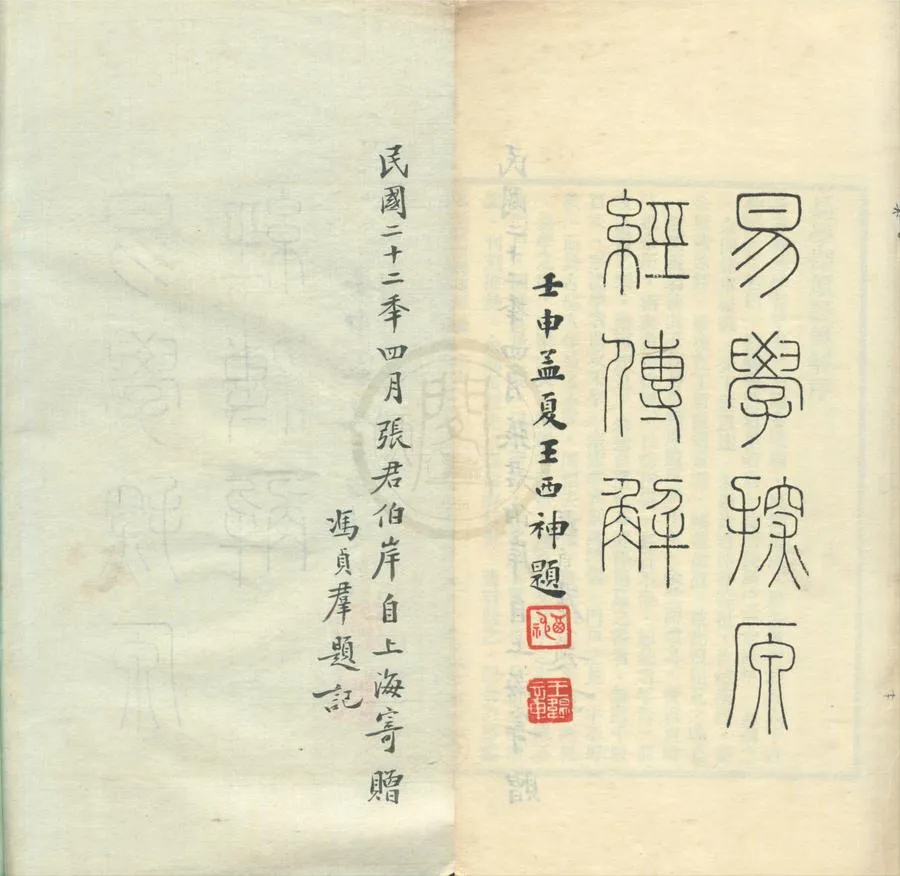 易學探原
經傳解
壬申孟夏王西神題
西神
王蘊章
民國二十二年四月張君伯岸自上海寄贈
馮貞羣題記